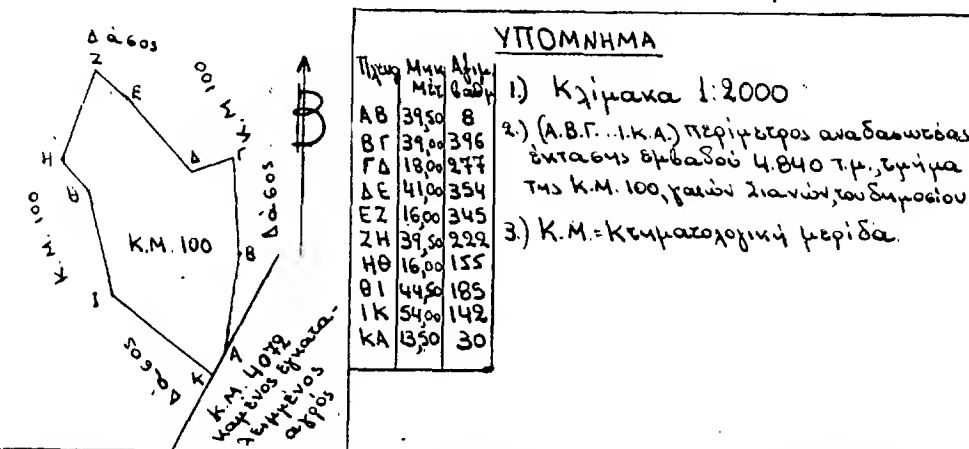 Δάσος
Ζ
Ε
Κ.Μ. 100
Η
Θ
Δ
Γ
Β
Δάσος
Κ.Μ. 100
Κ.Μ. 100
Β
Ι
Δάσος
Κ
Α
Κ.Μ. 4072
καμένος εγκατα-
λειμμένος
αγρός
ΥΠΟΜΝΗΜΑ
Πλευρ Μηκ Αζιμ
Μετ βαθμ
ΑΒ 39,50 8
ΒΓ 39,00 396
ΓΔ 18,00 277
ΔΕ 41,00 354
ΕΖ 16,00 345
ΖΗ 39,50 222
ΗΘ 16,00 155
ΘΙ 44,50 185
ΙΚ 54,00 142
ΚΑ 13,50 30
1.) Κλίμακα 1:2000
2.) (Α.Β.Γ...Ι.Κ.Α.) περίμετρος αναδασωτέας
έκτασης εμβαδού 4.840 τ.μ., τμήμα
της Κ.Μ. 100, γαιών Σιανών, του δημοσίου
3.) Κ.Μ.=Κτηματολογική μερίδα.